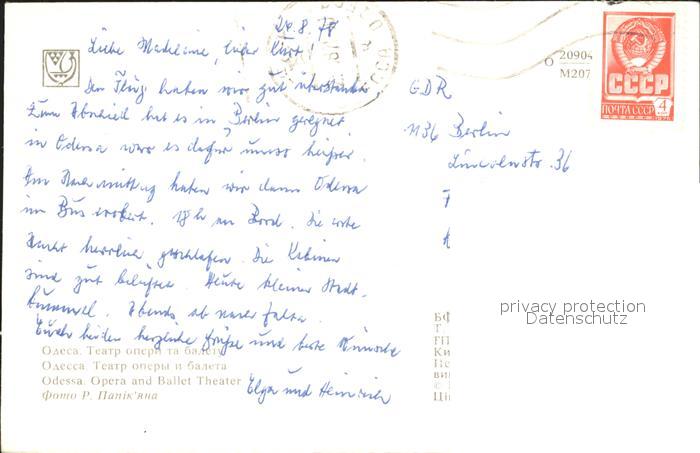 24.8.78
Liebe Madeleine, lieber Kurt!
Den Flug haben wir gut überstanden
Zum Abschied hat es in Berlin geregnet
in Odessa war es dafür umso heißer.
Am Nachmittag haben wir dann Odessa
im Bus erobert. 18 h an Bord. Die erste
Nacht herrlich geschlafen. Die Kabinen
sind gut belüftet. Heute kleiner Stadt-
bummel. Abends ab nach Jalta.
Euch beiden herzliche Grüße und beste Wünsche
Elga und Heinrich
Одеса. Театр опери та балету
Одесса. Театр оперы и балета
Odessa. Opera and Ballet Theater
Фото Р. Папік'яна
О 20904
М207
СССР
ПОЧТА СССР 4
GDR
1136 Berlin
Lincolnstr. 36
privacy protection
Datenschutz